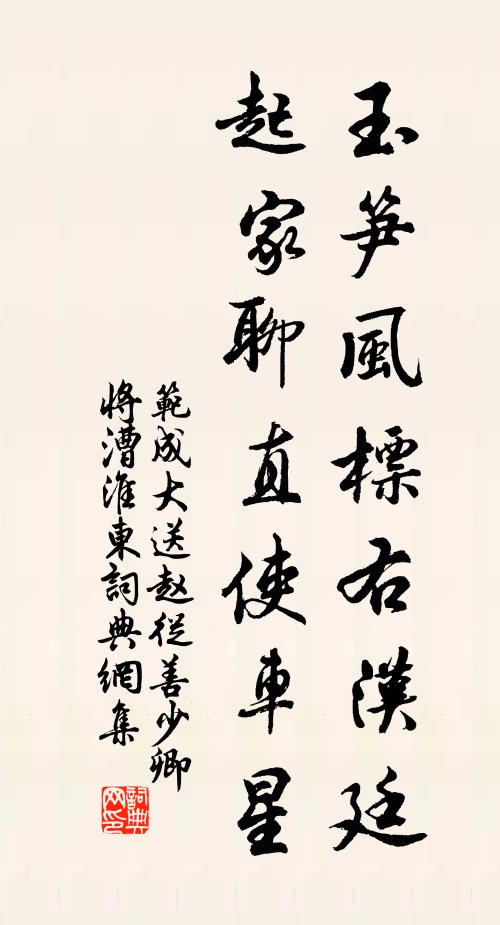 玉笋風標右漢廷
起家聊直使車星
範成大送赵從善少卿
将漕淮東詞典網集
詞典网印